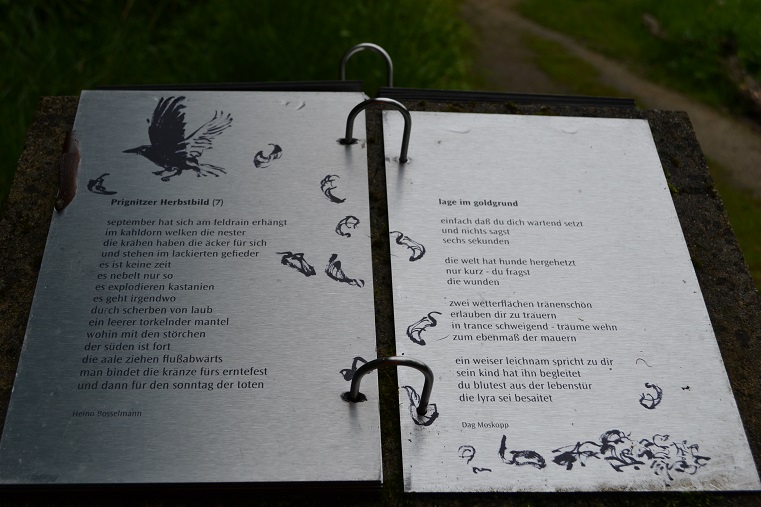 Prignitzer Herbstbild (7)
september hat sich am feldrain erhängt
im kahldorn welken die nester
die krähen haben die äcker für sich
und stehen im lackierten gefieder
es ist keine zeit
es nebelt nur so
es explodieren kastanien
es geht irgendwo
durch scherben von laub
ein leerer torkelnder mantel
wohin mit den störchen
der süden ist fort
die aale ziehen flußabwärts
man bindet die kränze fürs erntefest
und dann für den sonntag der toten
Heino Bosselmann
lage im goldgrund
einfach daß du dich wartend setzt
und nichts sagst
sechs sekunden
die welt hat hunde hergehetzt
nur kurz - du fragst
die wunden
zwei wetterflächen tränenschön
erlauben dir zu trauern
in trance schweigend - träume wehn
zum ebenmaß der mauern
ein weiser leichnam spricht zu dir
sein kind hat ihn begleitet
du blutest aus der lebenstür
die lyra sei besaitet
Dag Moskopp